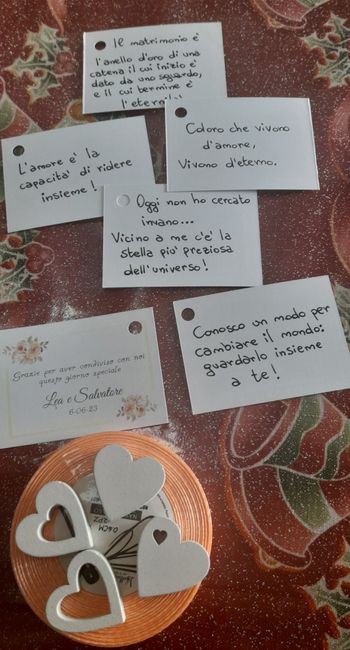 Il matrimonio è
l'anello d'oro di una
catena il cui inizio è
dato da uno sguardo,
e il cui termine è
Coloro che vivono
d'amore,
Vivono d'eterno.
L'amore è la
capacità di ridere
insieme!
Oggi non ho cercato
invano...
Vicino a me c'è la
stella più preziosa
dell'universo!
Conosco un modo per
cambiare il mondo:
guardarlo insieme
a te!
Grazie per aver condiviso con noi
questo giorno speciale
Lea e Salvatore
6-06-23